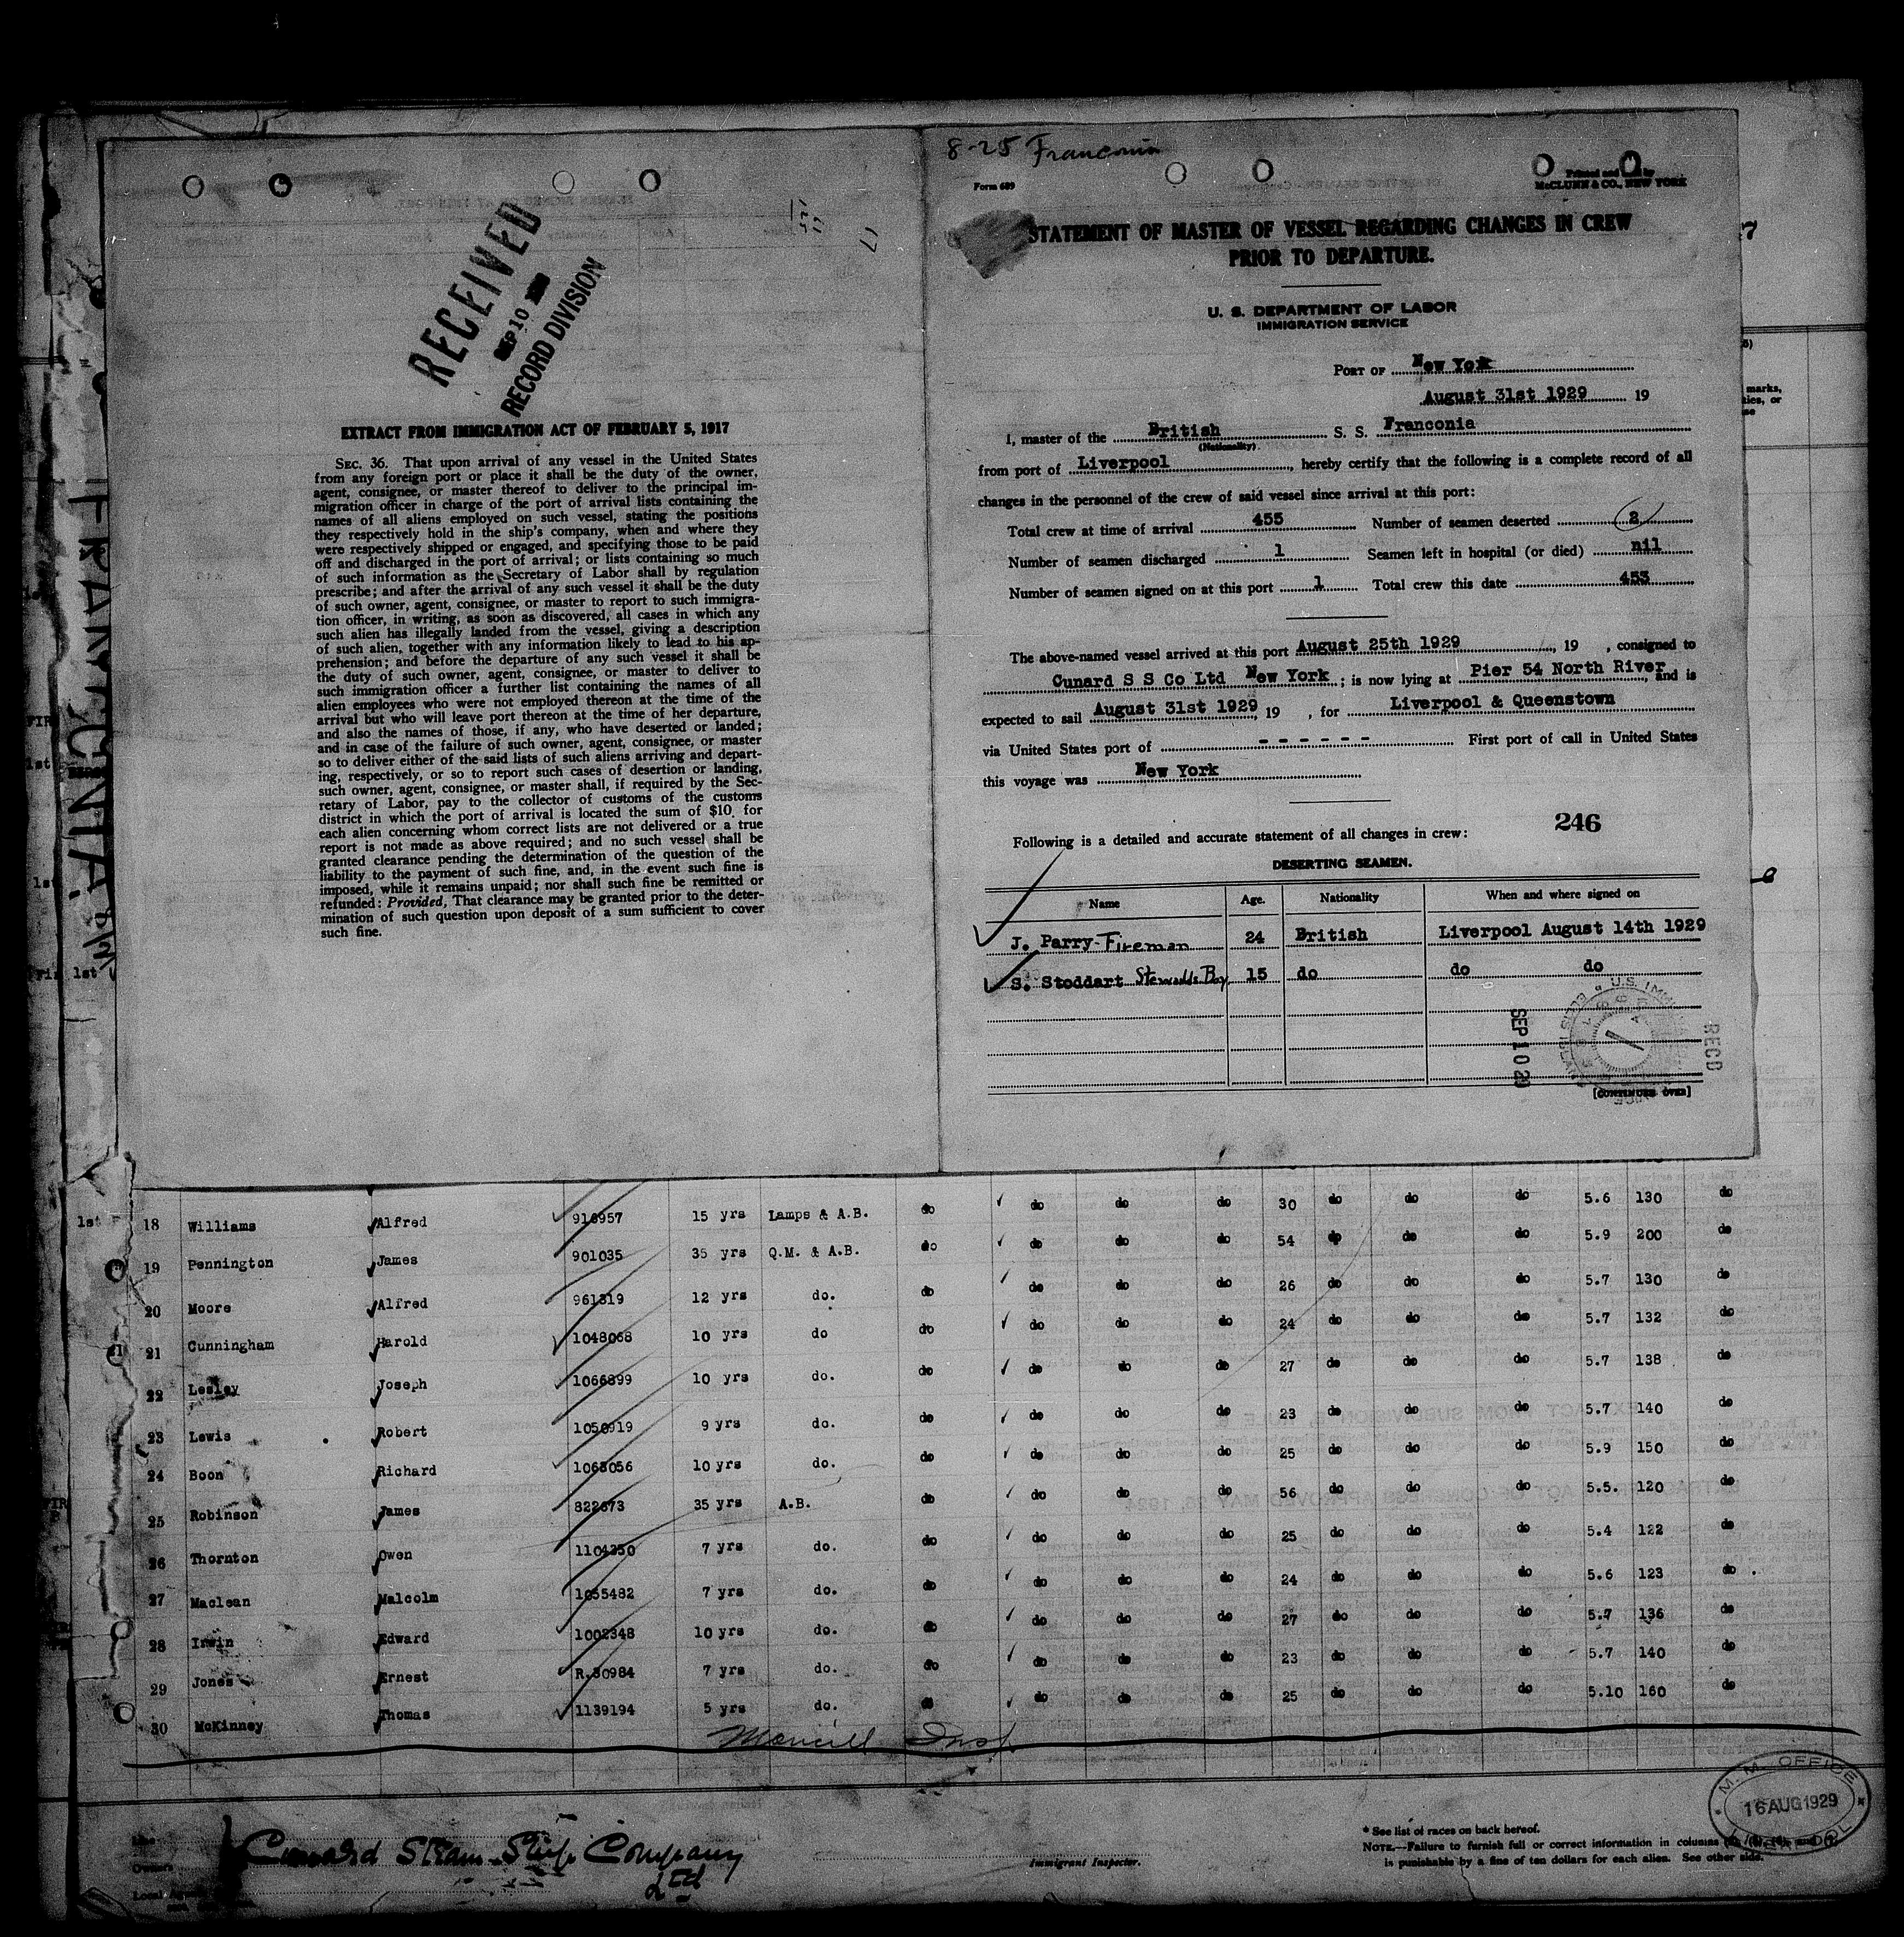 RECEIVED
SEP 10
RECORD DIVISION
EXTRACT FROM IMMIGRATION ACT OF FEBRUARY 5, 1917
SEC. 36. That upon arrival of any vessel in the United States
from any foreign port or place it shall be the duty of the owner,
agent, consignee, or master thereof to deliver to the principal im-
migration officer in charge of the port of arrival lists containing the
names of all aliens employed on such vessel, stating the positions
they respectively hold in the ship's company, when and where they
were respectively shipped or engaged, and specifying those to be paid
off and discharged in the port of arrival; or lists containing so much
of such information as the Secretary of Labor shall by regulation
prescribe; and after the arrival of any such vessel it shall be the duty
of such owner, agent, consignee, or master to report to such immigra-
tion officer, in writing, as soon as discovered, all cases in which any
such alien has illegally landed from the vessel, giving a description
of such alien, together with any information likely to lead to his ap-
prehension; and before the departure of any such vessel it shall be
the duty of such owner, agent, consignee, or master to deliver to
such immigration officer a further list containing the names of all
alien employees who were not employed thereon at the time of the
arrival but who will leave port thereon at the time of her departure,
and also the names of those, if any, who have deserted or landed;
and in case of the failure of such owner, agent, consignee, or master
so to deliver either of the said lists of such aliens arriving and depart-
ing, respectively, or so to report such cases of desertion or landing,
such owner, agent, consignee, or master shall, if required by the Sec-
retary of Labor, pay to the collector of customs of the customs
district in which the port of arrival is located the sum of $10 for
each alien concerning whom correct lists are not delivered or a true
report is not made as above required; and no such vessel shall be
granted clearance pending the determination of the question of the
liability to the payment of such fine, and, in the event such fine is
imposed, while it remains unpaid; nor shall such fine be remitted or
refunded: Provided, That clearance may be granted prior to the deter-
mination of such question upon deposit of a sum sufficient to cover
such fine.
FRANCONIA
8-25 Franconia
Form 689
Printed and
McCLUNN & CO., NEW YORK
STATEMENT OF MASTER OF VESSEL REGARDING CHANGES IN CREW
PRIOR TO DEPARTURE.
U. S. DEPARTMENT OF LABOR
IMMIGRATION SERVICE
PORT OF New York
August 31st 1929 19
I, master of the British S. S. Franconia
(Nationality)
from port of Liverpool, hereby certify that the following is a complete record of all
changes in the personnel of the crew of said vessel since arrival at this port:
Total crew at time of arrival 455 Number of seamen deserted 2
Number of seamen discharged 1 Seamen left in hospital (or died) nil
Number of seamen signed on at this port 1 Total crew this date 453
The above-named vessel arrived at this port August 25th 1929, 19 , consigned to
Cunard S S Co Ltd New York; is now lying at Pier 54 North River, and is
expected to sail August 31st 1929, 19 , for Liverpool & Queenstown
via United States port of - - - - - - First port of call in United States
this voyage was New York
246
Following is a detailed and accurate statement of all changes in crew:
DESERTING SEAMEN.
Name Age. Nationality When and where signed on
J. Parry-Fireman 24 British Liverpool August 14th 1929
S. Stoddart Stewards Boy 15 do do do
SEP 10 29
RECD
[CONTINUED OVER]
18 Williams Alfred 916957 15 yrs Lamps & A.B. do do do do 30 do do do 5.6 130 do
19 Pennington James 901035 35 yrs Q.M. & A.B. do do do do 54 do do do 5.9 200 do
20 Moore Alfred 961319 12 yrs do. do do do do 26 do do do 5.7 130 do
21 Cunningham Harold 1048068 10 yrs do do do do do 24 do do do 5.7 132 do
22 Lesley Joseph 1066899 10 yrs do. do do do do 27 do do do 5.7 138 do
23 Lewis Robert 1050919 9 yrs do. do do do do 23 do do do 5.7 140 do
24 Boon Richard 1063056 10 yrs do. do do do do 25 do do do 5.9 150 do
25 Robinson James 822673 35 yrs A.B. do do do do 56 do do do 5.5. 120 do
26 Thornton Owen 1104350 7 yrs do. do do do do 25 do do do 5.4 122 do
27 Maclean Malcolm 1055482 7 yrs do. do do do do 24 do do do 5.6 123 do
28 Irwin Edward 1002348 10 yrs do. do do do do 27 do do do 5.7 136 do
29 Jones Ernest R.30984 7 yrs do. do do do do 23 do do do 5.7 140 do
30 McKinney Thomas 1139194 5 yrs do. do do do do 25 do do do 5.10 160 do
Insp
Owners
Cunard Steam-Ship Company
Ltd
Immigrant Inspector.
* See list of races on back hereof.
NOTE.—Failure to furnish full or correct information in columns
is punishable by a fine of ten dollars for each alien. See other side.
M. M. OFFICE
16 AUG 1929
LIVERPOOL